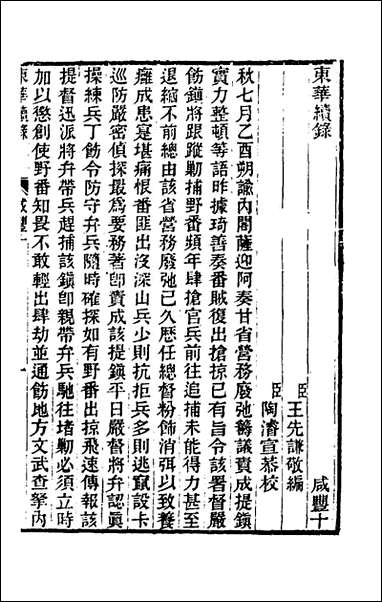 東華續錄
咸豐十
臣王先謙敬編
臣陶濬宣恭校
秋七月乙酉朔諭內閣薩迎阿奏甘省營務廢弛籌議責成提鎭
實力整頓等語昨據琦善奏番賊復出搶掠已有旨令該署督嚴
飭鎭將跟蹤勦捕野番頻年肆搶官兵前往追捕未能得力甚至
退縮不前總由該省營務廢弛已久歷任總督粉飾消弭以致養
癰成患寔堪痛恨番匪出沒深山兵少則抗拒兵多則逃竄設卡
巡防嚴密偵探最爲要務著卽責成該提鎭平日嚴督將弁認眞
操練兵丁飭令防守弁兵隨時確探如有野番出掠飛速傳報該
提督迅派將弁帶兵趕捕該鎭卽親帶弁兵馳往堵勦必須立時
加以懲創使野番知畏不敢輕出肆劫並通飭地方文武查拏內
東華續錄
咸豐十
一